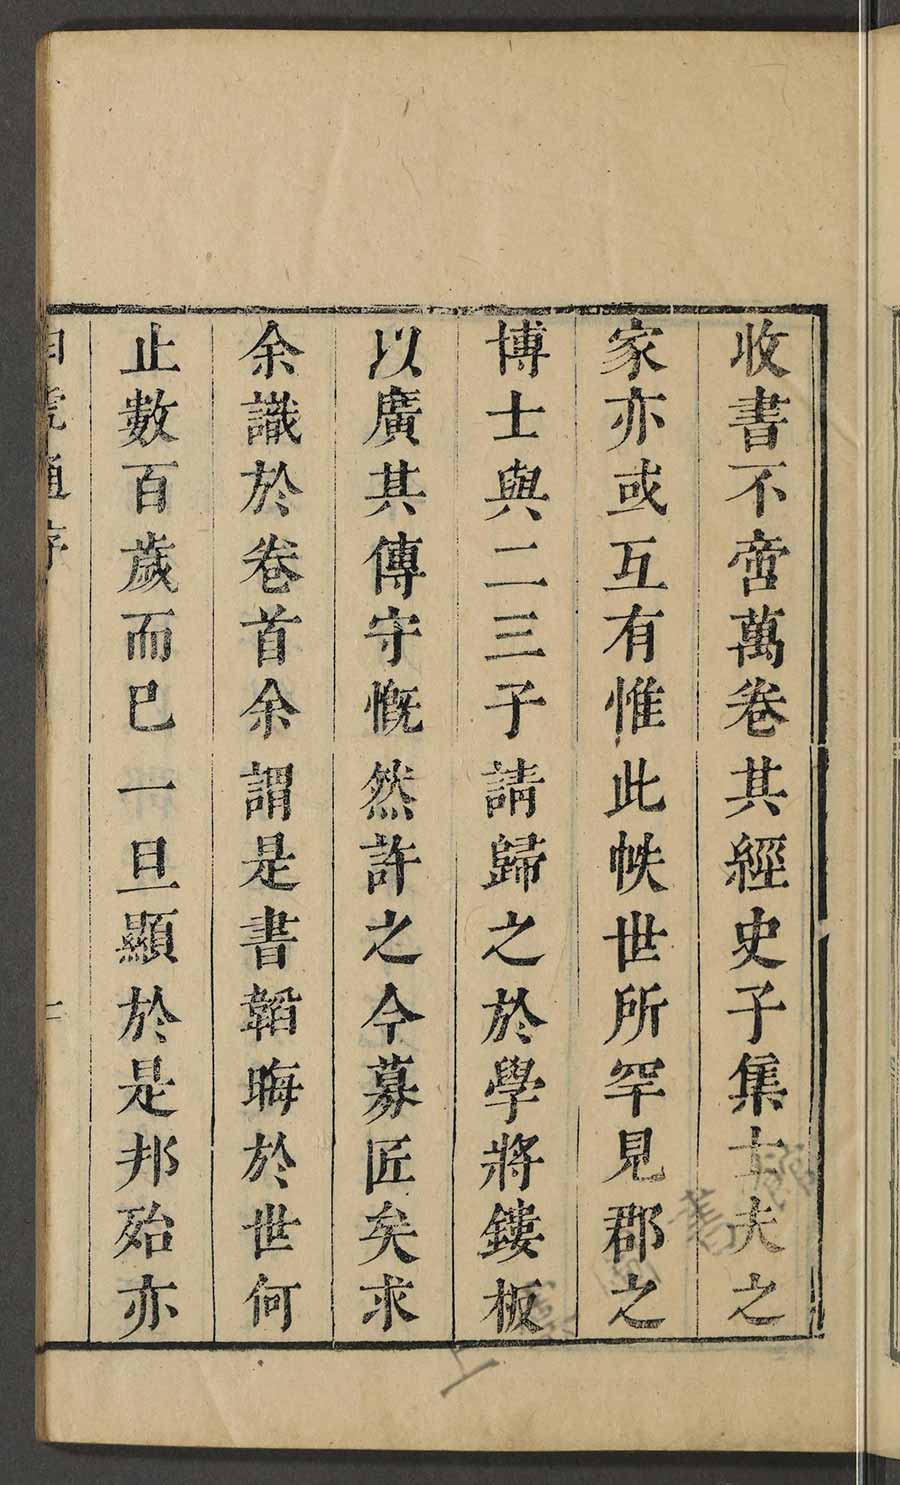 收書不啻萬卷其經史子集士夫之
家亦或互有惟此帙世所罕見郡之
博士與二三子請歸之於學將鏤板
以廣其傳守慨然許之今募匠矣求
余識於卷首余謂是書韜晦於世何
止數百歲而巳一旦顯於是邦殆亦
白虎通序